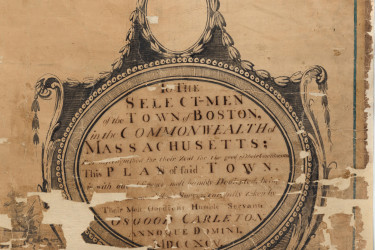 To THE
SELECT-MEN
of the TOWN of BOSTON,
in the COMMONWEALTH of
MASSACHUSETTS;
for their Zeal for the good
This PLAN of said TOWN,
is with
Their Most Obedient Humble Servant
OSGOOD CARLETON
ANNOQUE DOMINI,
MDCCXCV